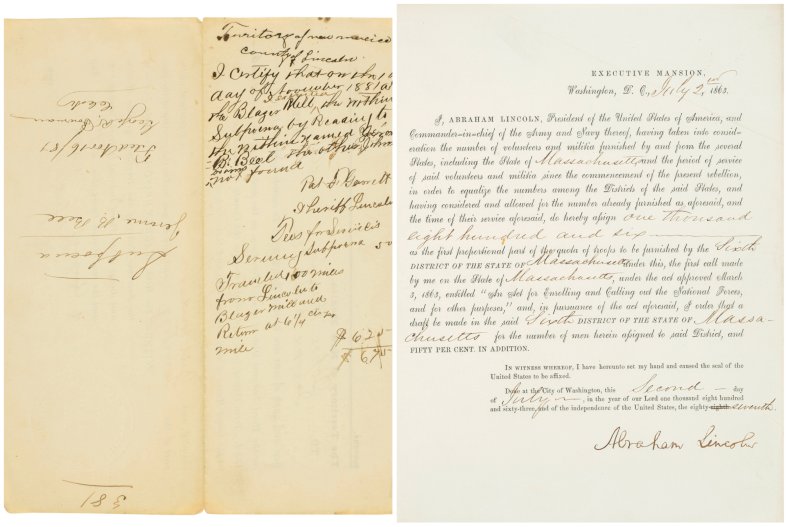 Territory of new mexico
county of Lincoln
I certify that on the
day of November 1881 at
Blazer Mill, the within
Subpoena by Reading to
the within named
B. Bell the other
not found
Pat F. Garrett
Sheriff Lincoln
Fees for Services
Serving Subpoena 50
Traveled 100 miles
from Lincoln to
Blazer Mill and
Return at 6¼ cts per
mile
$ 6.25
$ 6.75
Subpoena
Jerome B. Bell
Filed Nov 16/81
George R. Bowman
Clerk
381
EXECUTIVE MANSION,
Washington, D. C., July 2nd, 1863.
I, ABRAHAM LINCOLN, President of the United States of America, and
Commander-in-chief of the Army and Navy thereof, having taken into consid-
eration the number of volunteers and militia furnished by and from the several
States, including the State of Massachusetts, and the period of service
of said volunteers and militia since the commencement of the present rebellion,
in order to equalize the numbers among the Districts of the said States, and
having considered and allowed for the number already furnished as aforesaid, and
the time of their service aforesaid, do hereby assign one thousand
eight hundred and six
as the first proportional part of the quota of troops to be furnished by the Sixth
DISTRICT OF THE STATE OF Massachusetts under this, the first call made
by me on the State of Massachusetts, under the act approved March
3, 1863, entitled "An Act for Enrolling and Calling out the National Forces,
and for other purposes," and, in pursuance of the act aforesaid, I order that a
draft be made in the said Sixth DISTRICT OF THE STATE OF Massa-
chusetts for the number of men herein assigned to said District, and
FIFTY PER CENT. IN ADDITION.
IN WITNESS WHEREOF, I have hereunto set my hand and caused the seal of the
United States to be affixed.
Done at the City of Washington, this Second day
of July, in the year of our Lord one thousand eight hundred
and sixty-three, and of the independence of the United States, the eighty-eighth seventh.
Abraham Lincoln